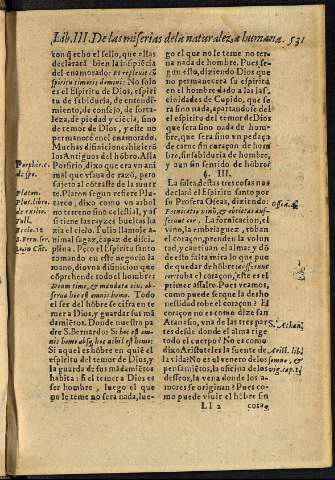 Lib. III. De las miserias de la naturaleza humana. 531
con q̃ echo el sello, que ellas
declarará bien la inspiraciõ
del enamorado: Et repleuit eũ
spiritus timoris domini: No solo
es el Espiritu de Dios, espiri
tu de sabiduria, de entendi
miento, de consejo, de forta-
leza, de piedad y ciẽcia, sino
de temor de Dios, y este no
permanece en el enamorado.
Muchas difiniciones hizierõ
los Antiguos del hõbre. Alla
Porfirio, dixo que era vn ani
mal que vsaua de razõ, pero
sujeto al contraste de la muer
te. Platon segun refiere Plu-
tarco, dixo que era vn arbol
no terreno sino celestial, y as
si tiene las rayzes bueltas ha
zia el cielo. Tulio llamole a-
nimal sagaz, capaz de disci-
plina. Pero el Espiritu santo
tomando en este negocio la
mano, dio vna difinicion que
cõprehende todo el hombre:
Deum time, & mandata eius ob-
serua hoc est omnis homo. Todo
el ser del hõbre se cifra en te
mer a Dios, y guardar sus mã
damiẽtos. Donde nuestro pa
dre S. Bernardo: Si hoc est om-
nis homo absq; hoc nihil est homo:
Si aquel es hõbre en quiẽ el
espiritu del temor de Dios, y
la guarda de sus mãdamiẽtos
habita: si el temer a Dios es
ser hombre, luego el que
no le teme no sera nada, lue-
go el que no le teme no ter-
na nada de hombre. Pues se
gun esto, diziendo Dios que
no permanecera su espiritu
en el hombre dado a las
ciedades de Cupido, que se
ra sino nada, apartandose del
el espiritu del temor de Dios
que sera sino nada de hom-
bre, que sera sino vn pedaço
de carne sin coraçon de hom
bre, sin sabiduria de hombre,
y aun sin sentido de hõbre?
§. III.
La salsa destas tres cosas nos
declarò el Espiritu santo por
su Profeta Oseas, diziendo:
Fornicatio vinũ, & ebrietas auf-
ferunt cor. La fornicacion, el
vino, la embriaguez, roban
el coraçon, prenden la volun
tad, y cautiuan el alma; y dõ
de esto falta mira lo que pue
de quedar de hõbre
el coraçon, este es el
primer assalto. Pues veamos,
como puede ser que la desho
nestidad robe el coraçon? El
coraçon no es como dize san
Atanasio, vna de las tres par
tes desde donde el alma rige
todo el cuerpo? No es como
dixo Aristoteles la fuente de
la vida: No es el venero de los
pensamiẽtos, la oficina de los
desseos, la vena donde los a-
mores se originan? Pues co-
mo puede viuir el hõbre sin
Ll 2 cora-
Porphir.
de spe.
Platon.
Plut. libro
de exilio.
Tull.
Eccle. 12
Oseæ. 4
S. Athan.
Arist. lib.